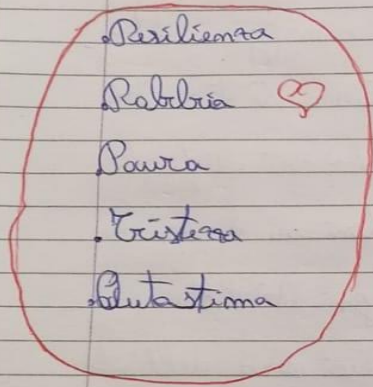 .Resilienza
.Rabbia
.Paura
.Tristezza
.Autostima